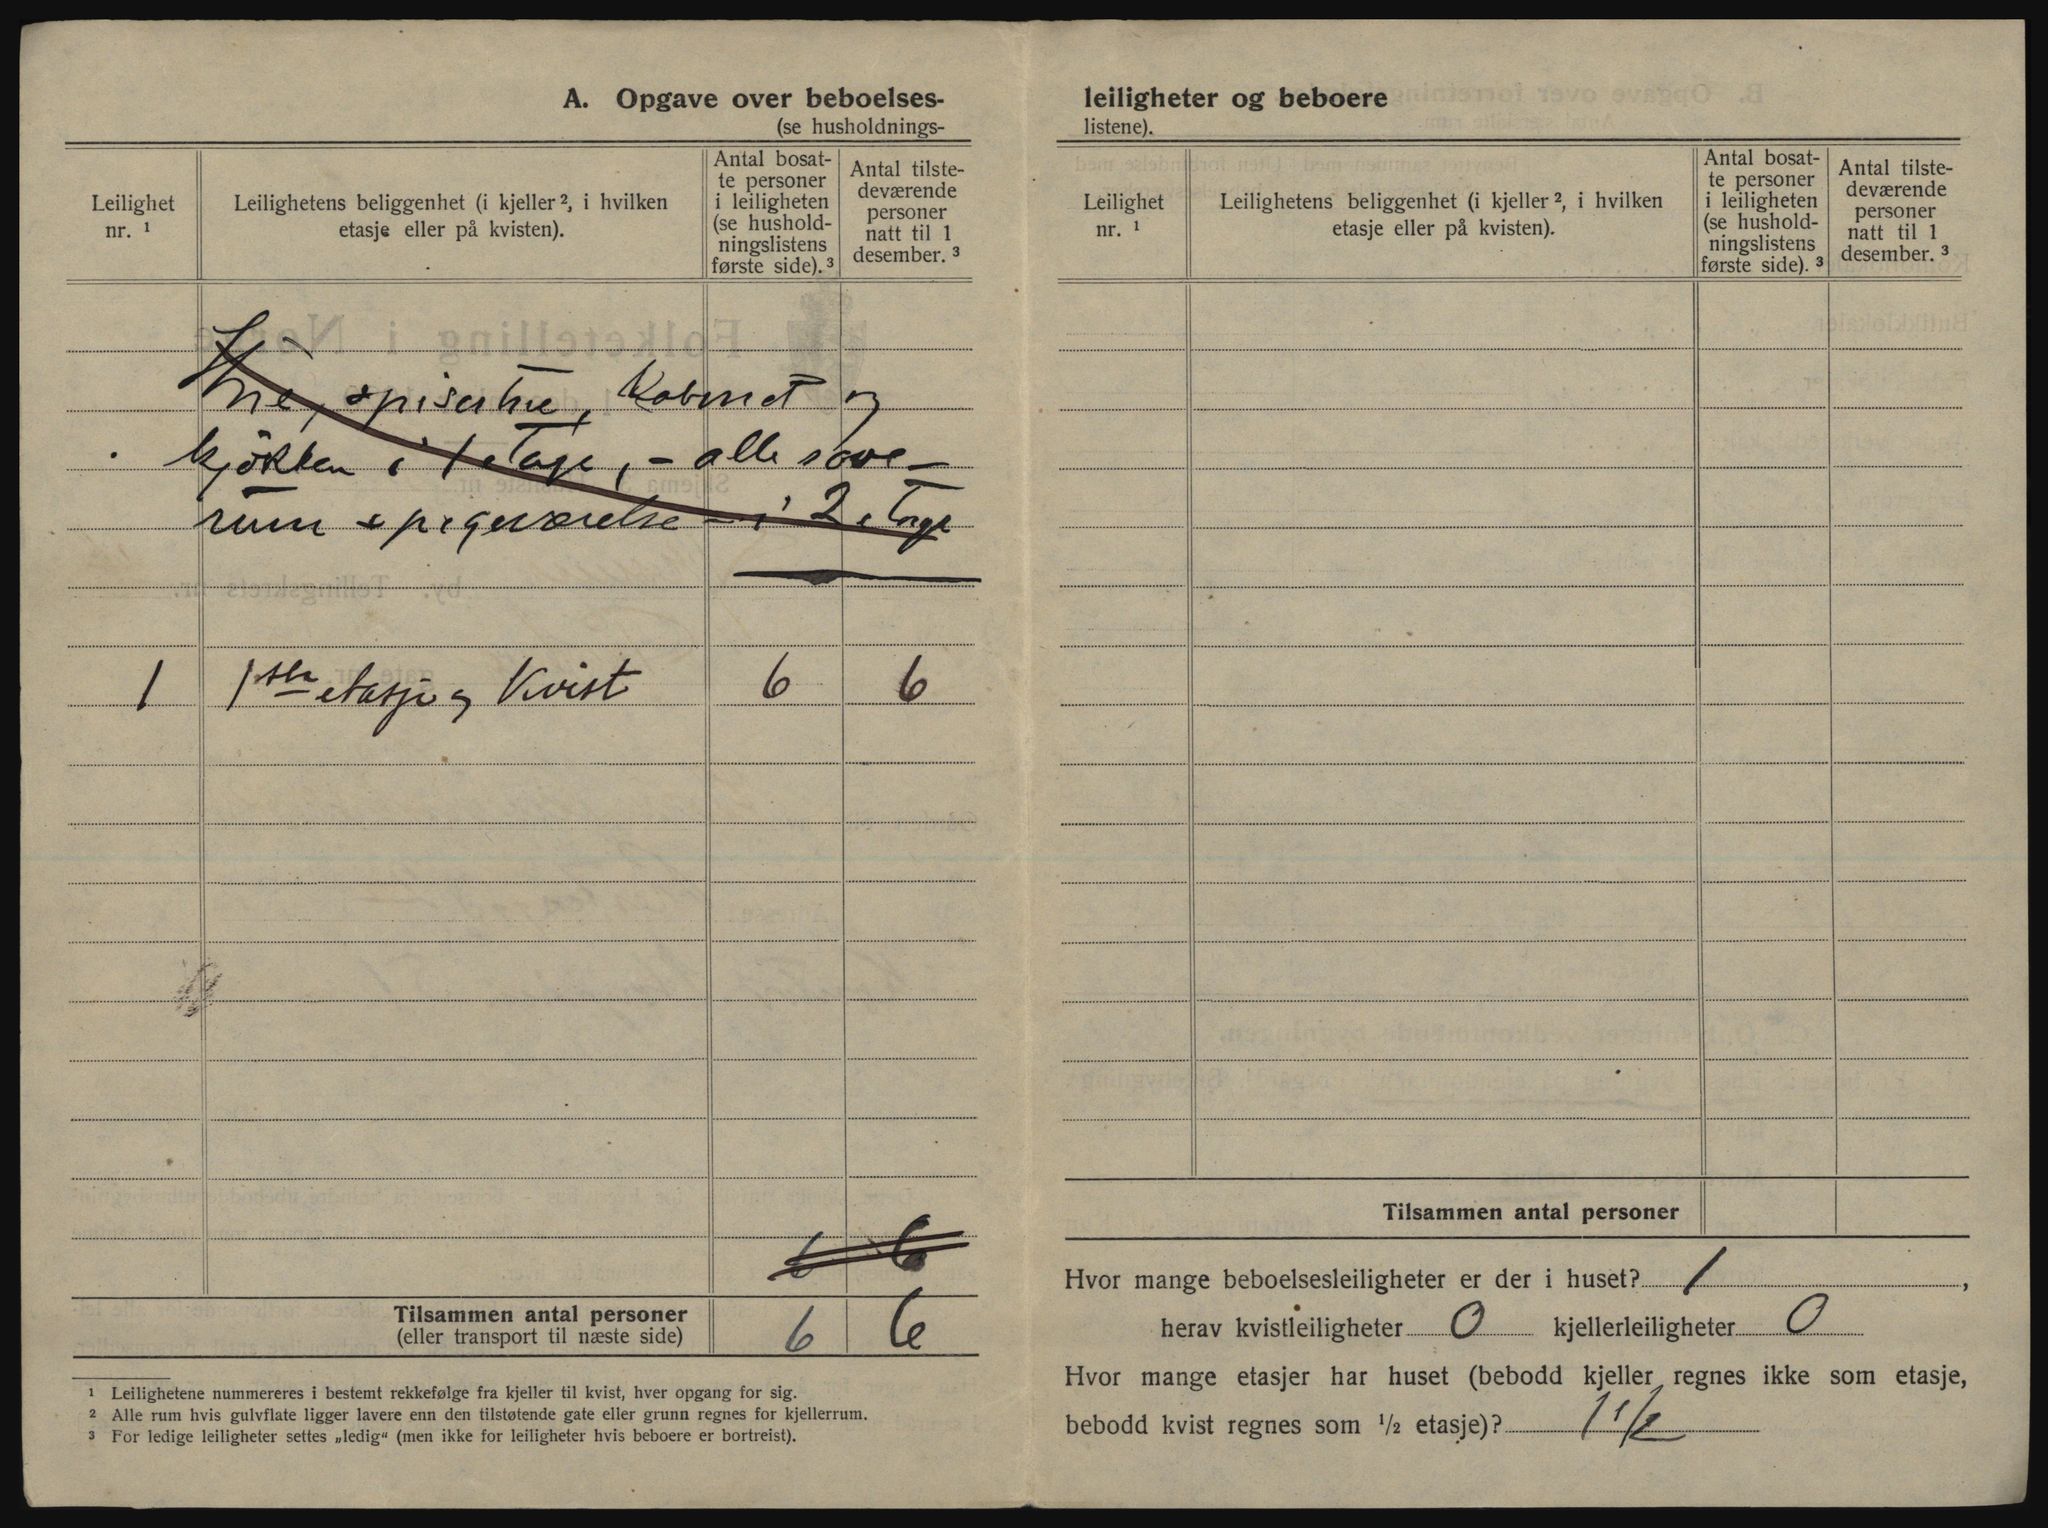 A. Opgave over beboelses-
(se husholdnings-
Leilighet
nr. ¹
Leilighetens beliggenhet (i kjeller ², i hvilken
etasje eller på kvisten).
Antal bosat-
te personer
i leiligheten
(se hushold-
ningslistens
første side). ³
Antal tilste-
deværende
personer
natt til 1
desember. ³
spisestue, Kabinet og
kjøkken i 1 etage, - alle sove-
rum + pigeværelse - i 2 etage
1 1ste etasje og Kvist 6 6
6 6
Tilsammen antal personer
(eller transport til næste side)
6 6
¹ Leilighetene nummereres i bestemt rekkefølge fra kjeller til kvist, hver opgang for sig.
² Alle rum hvis gulvflate ligger lavere enn den tilstøtende gate eller grunn regnes for kjellerrum.
³ For ledige leiligheter settes „ledig“ (men ikke for leiligheter hvis beboere er bortreist).
leiligheter og beboere
listene).
Leilighet
nr. ¹
Leilighetens beliggenhet (i kjeller ², i hvilken
etasje eller på kvisten).
Antal bosat-
te personer
i leiligheten
(se hushold-
ningslistens
første side). ³
Antal tilste-
deværende
personer
natt til 1
desember. ³
Tilsammen antal personer
Hvor mange beboelsesleiligheter er der i huset? 1,
herav kvistleiligheter 0 kjellerleiligheter 0
Hvor mange etasjer har huset (bebodd kjeller regnes ikke som etasje,
bebodd kvist regnes som ½ etasje)? 1 1/2